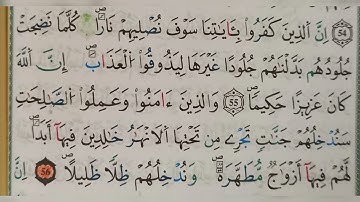 (54) إِنَّ ٱلَّذِينَ كَفَرُوا۟ بِـَٔايَٰتِنَا سَوْفَ نُصْلِيهِمْ نَارًۭا ۖ كُلَّمَا نَضِجَتْ
جُلُودُهُم بَدَّلْنَٰهُمْ جُلُودًا غَيْرَهَا لِيَذُوقُوا۟ ٱلْعَذَابَ ۗ إِنَّ ٱللَّهَ
كَانَ عَزِيزًا حَكِيمًۭا (55) وَٱلَّذِينَ ءَامَنُوا۟ وَعَمِلُوا۟ ٱلصَّٰلِحَٰتِ
سَنُدْخِلُهُمْ جَنَّٰتٍۢ تَجْرِى مِن تَحْتِهَا ٱلْأَنْهَٰرُ خَٰلِدِينَ فِيهَآ أَبَدًۭا ۖ
لَّهُمْ فِيهَآ أَزْوَٰجٌۭ مُّطَهَّرَةٌۭ ۖ وَنُدْخِلُهُمْ ظِلًّۭا ظَلِيلًا (56) إِنَّ